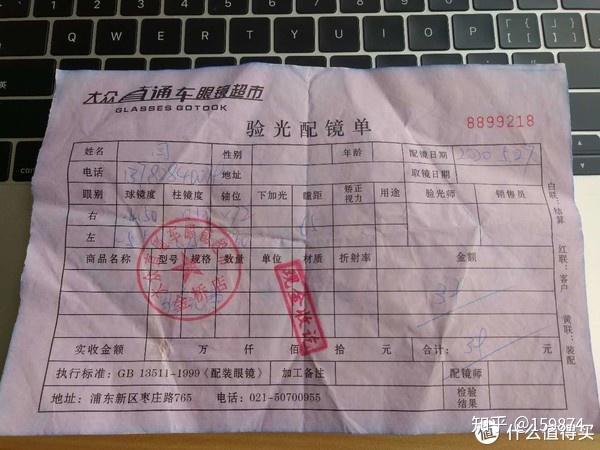 大众直通车眼镜超市
GLASSES GOTOOK
验光配镜单
8899218
姓名 闫 性别 年龄 配镜日期 2020.5.27
电话 地址 取镜日期
眼别 球镜度 柱镜度 轴位 下加光 瞳距 矫正视力 用途 验光师 销售员
右
左
商品名称 型号 规格 数量 单位 材质 折射率 金额
金桥店
现金收讫
实收金额 万 仟 佰 拾 元 合计: 元
执行标准: GB 13511-1999《配装眼镜》 加工备注 配镜师
地址: 浦东新区枣庄路765 电话: 021-50700955 检验结果
白联:结算 红联:客户 黄联:装配
知乎 @159874
值 什么值得买